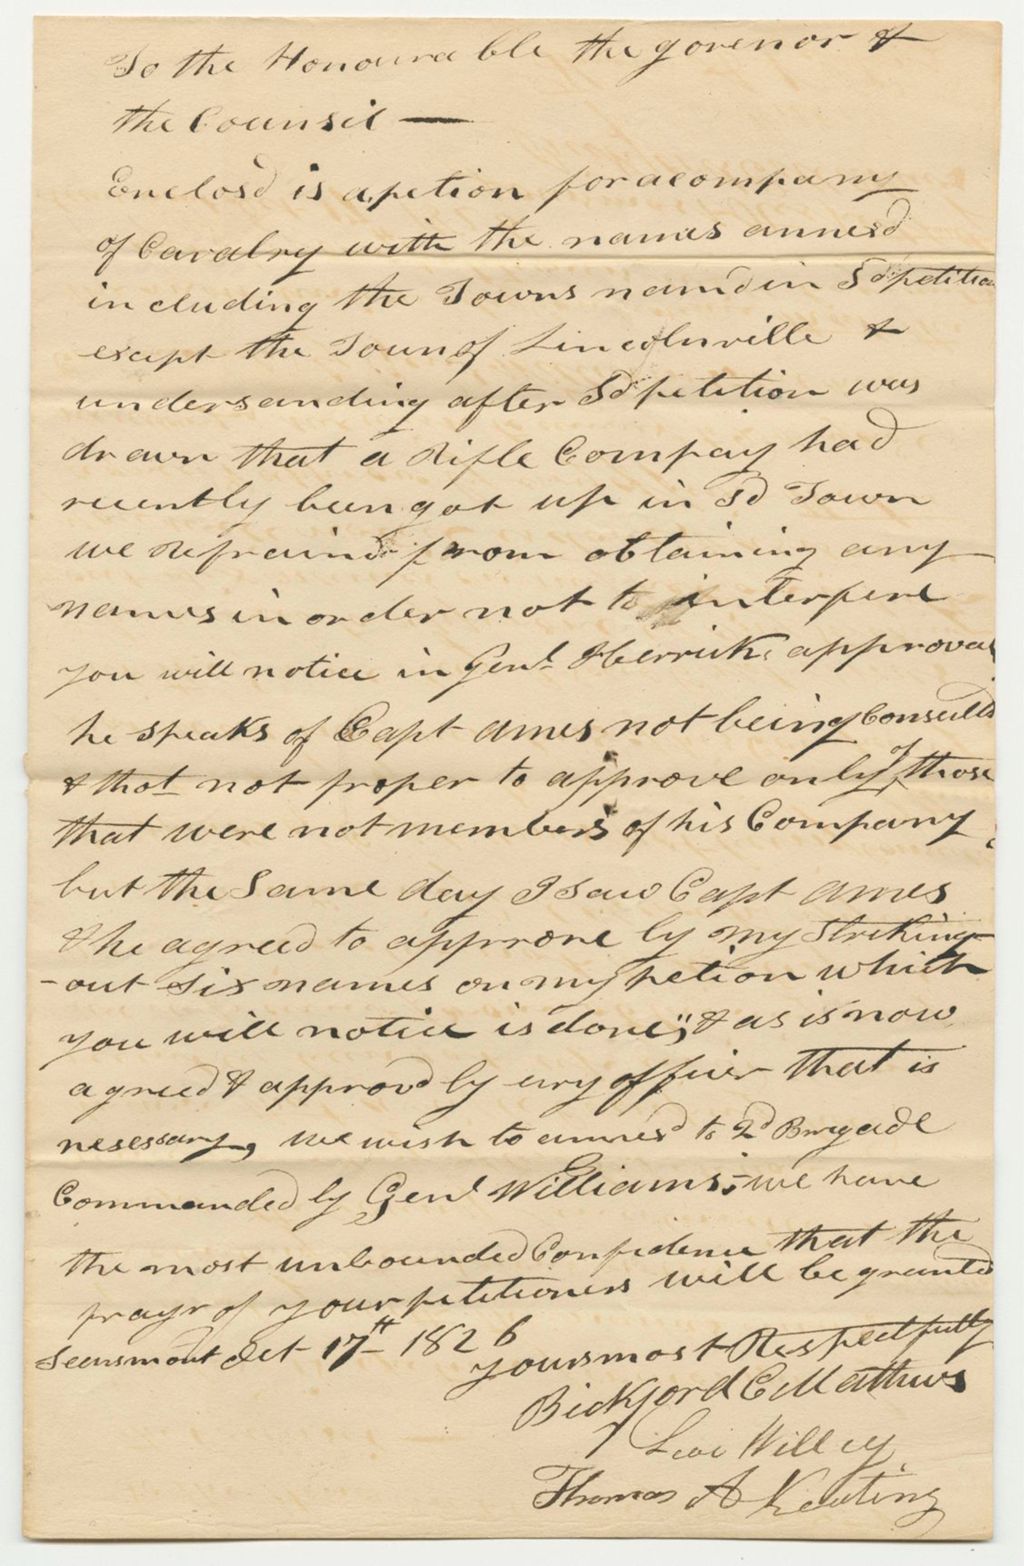 To the Honourable the govenor &
the Counsil —
Enclosd is a petion for a company
of Cavalry with the names annexd
including the Towns namd in Sd petition
except the Town of Lincolnville &
undersanding after Sd petition was
drawn that a Rifle Compay had
recently been got up in Sd Town
we refraind from obtaining any
names in order not to interfere
you will notice in Genl Herricks approval
he speaks of Capt Ames not being Consulld
& that not proper to approve only of those
that were not members of his Company
but the Same day I saw Capt Ames
& he agreed to approve by my Streking
-out six names on my petion which
you will notice is done;, & as is now
agreed & approvd by evry officer that is
nesessary, we wish to annexd to 2d Brigade
Commanded by Genl Williams;- we have
the most unbounded Confidence that the
prayr of your petitioners will be grantd
Searsmont Oct 17th 1826
yours most Respectfully
Bickford C Mathews
Levi Willey
Thomas A Keating